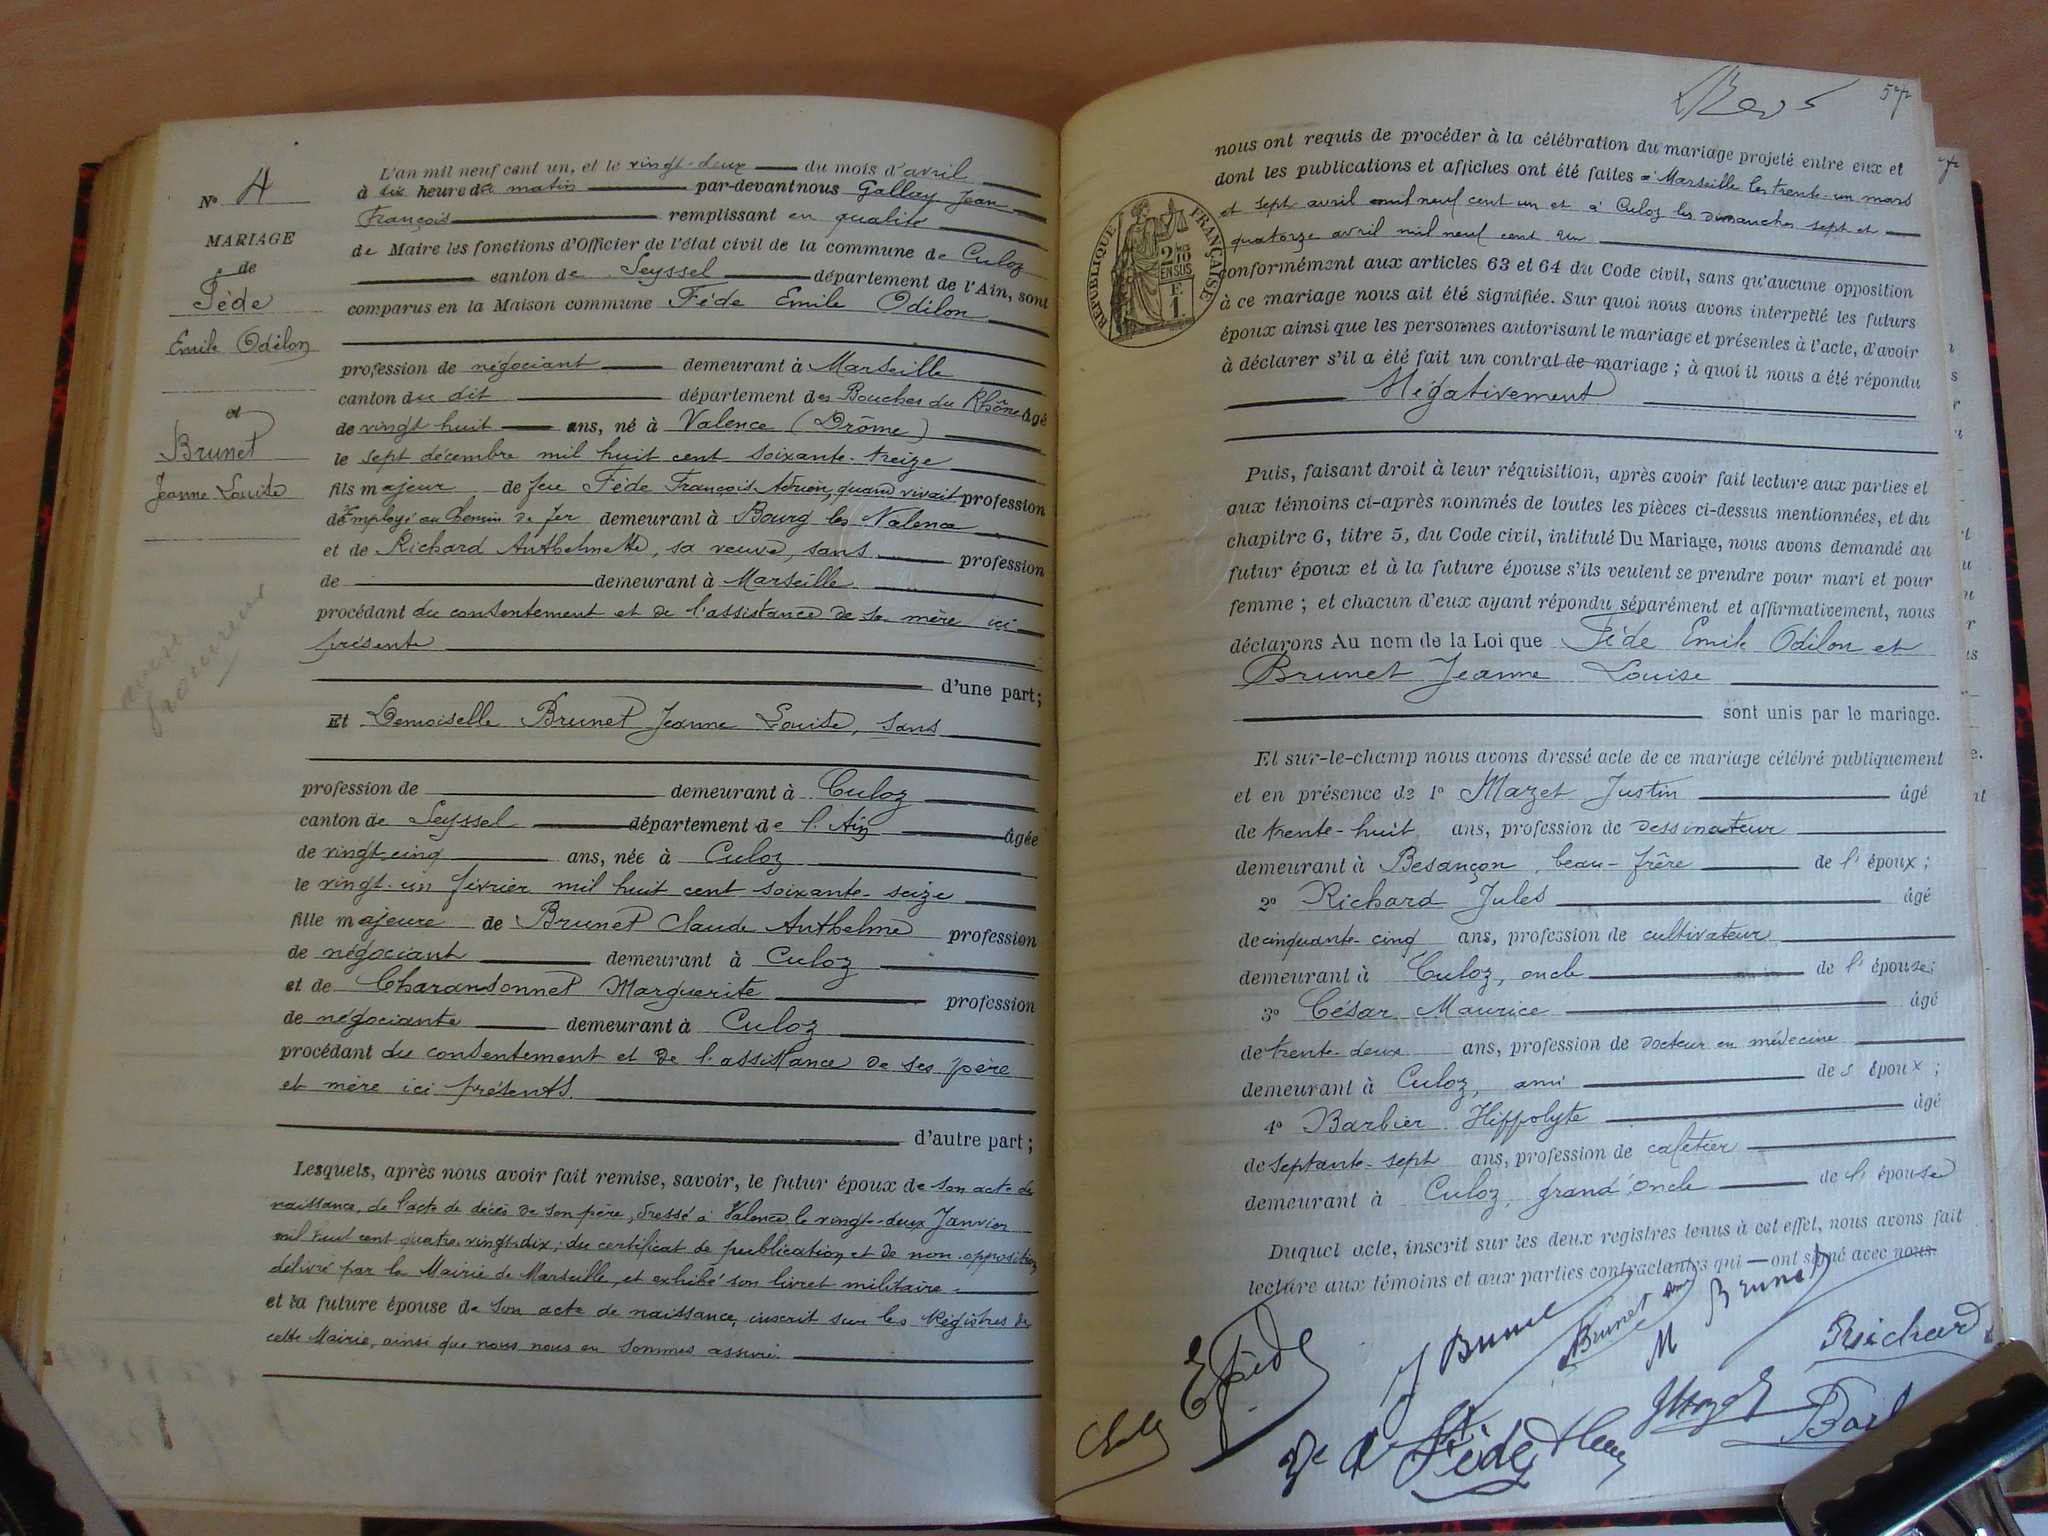 Nº 4
MARIAGE
de
Féde
Emile Odilon
et
Brunet
Jeanne Louise
L'an mil neuf cent un, et le vingt-deux du mois d'avril
à dix heure du matin par-devant nous Gallay Jean
François remplissant en qualité
de Maire les fonctions d'Officier de l'état civil de la commune de Culoz
canton de Seyssel département de l'Ain, sont
comparus en la Maison commune Féde Emile Odilon
profession de négociant demeurant à Marseille
canton du dit département des Bouches du Rhône âgé
de vingt huit ans, né à Valence (Drôme)
le sept décembre mil huit cent soixante-treize
fils majeur de feu Féde François Adrien, quand vivait profession
d'Employé au Chemin de fer demeurant à Bourg les Valence
et de Richard Anthelmette, sa veuve, sans profession
de demeurant à Marseille
procédant du consentement et de l'assistance de sa mère ici
présente
d'une part;
Et Demoiselle Brunet Jeanne Louise, sans
profession de demeurant à Culoz
canton de Seyssel département de l'Ain âgée
de vingt cinq ans, née à Culoz
le vingt-un février mil huit cent soixante-seize
fille majeure de Brunet Claude Anthelme profession
de négociant demeurant à Culoz
et de Charansonnet Marguerite profession
de négociante demeurant à Culoz
procédant du consentement et de l'assistance de ses père
et mère ici présents.
d'autre part;
Lesquels, après nous avoir fait remise, savoir, le futur époux de son acte de
naissance, de l'acte de décès de son père, dressé à Valence le vingt-deux Janvier
mil huit cent quatre-vingt-dix; du certificat de publication et de non opposition
délivré par la Mairie de Marseille, et exhibé son livret militaire.
et la future épouse de son acte de naissance, inscrit sur les Régistres de
cette Mairie, ainsi que nous nous en sommes assuré.
57
nous ont requis de procéder à la célébration du mariage projeté entre eux et
dont les publications et affiches ont été faites à Marseille les trente-un mars
et sept avril mil neuf cent un et à Culoz les dimanches sept et
quatorze avril mil neuf cent un
conformément aux articles 63 et 64 du Code civil, sans qu'aucune opposition
à ce mariage nous ait été signifiée. Sur quoi nous avons interpellé les futurs
époux ainsi que les personnes autorisant le mariage et présentes à l'acte, d'avoir
à déclarer s'il a été fait un contrat de mariage; à quoi il nous a été répondu
Négativement
RÉPUBLIQUE FRANÇAISE
2/10 EN SUS
E.
1.
Puis, faisant droit à leur réquisition, après avoir fait lecture aux parties et
aux témoins ci-après nommés de toutes les pièces ci-dessus mentionnées, et du
chapitre 6, titre 5, du Code civil, intitulé Du Mariage, nous avons demandé au
futur époux et à la future épouse s'ils veulent se prendre pour mari et pour
femme; et chacun d'eux ayant répondu séparément et affirmativement, nous
déclarons Au nom de la Loi que Féde Emile Odilon et
Brunet Jeanne Louise
sont unis par le mariage.
Et sur-le-champ nous avons dressé acte de ce mariage célébré publiquement
et en présence de 1º Mazet Justin âgé
de trente-huit ans, profession de dessinateur
demeurant à Besançon, beau-frère de l'époux;
2º Richard Jules âgé
de cinquante-cinq ans, profession de cultivateur
demeurant à Culoz, oncle de l'épouse;
3º César Maurice âgé
de trente-deux ans, profession de docteur en médecine
demeurant à Culoz, ami des époux;
4º Barbier Hippolyte âgé
de septante-sept ans, profession de cafetier
demeurant à Culoz, grand'oncle de l'épouse
Duquel acte, inscrit sur les deux registres tenus à cet effet, nous avons fait
lecture aux témoins et aux parties contractantes qui ont signé avec nous.
E Féde
J Brunet
Brunet
M Brunet
Richard
Ve Féde